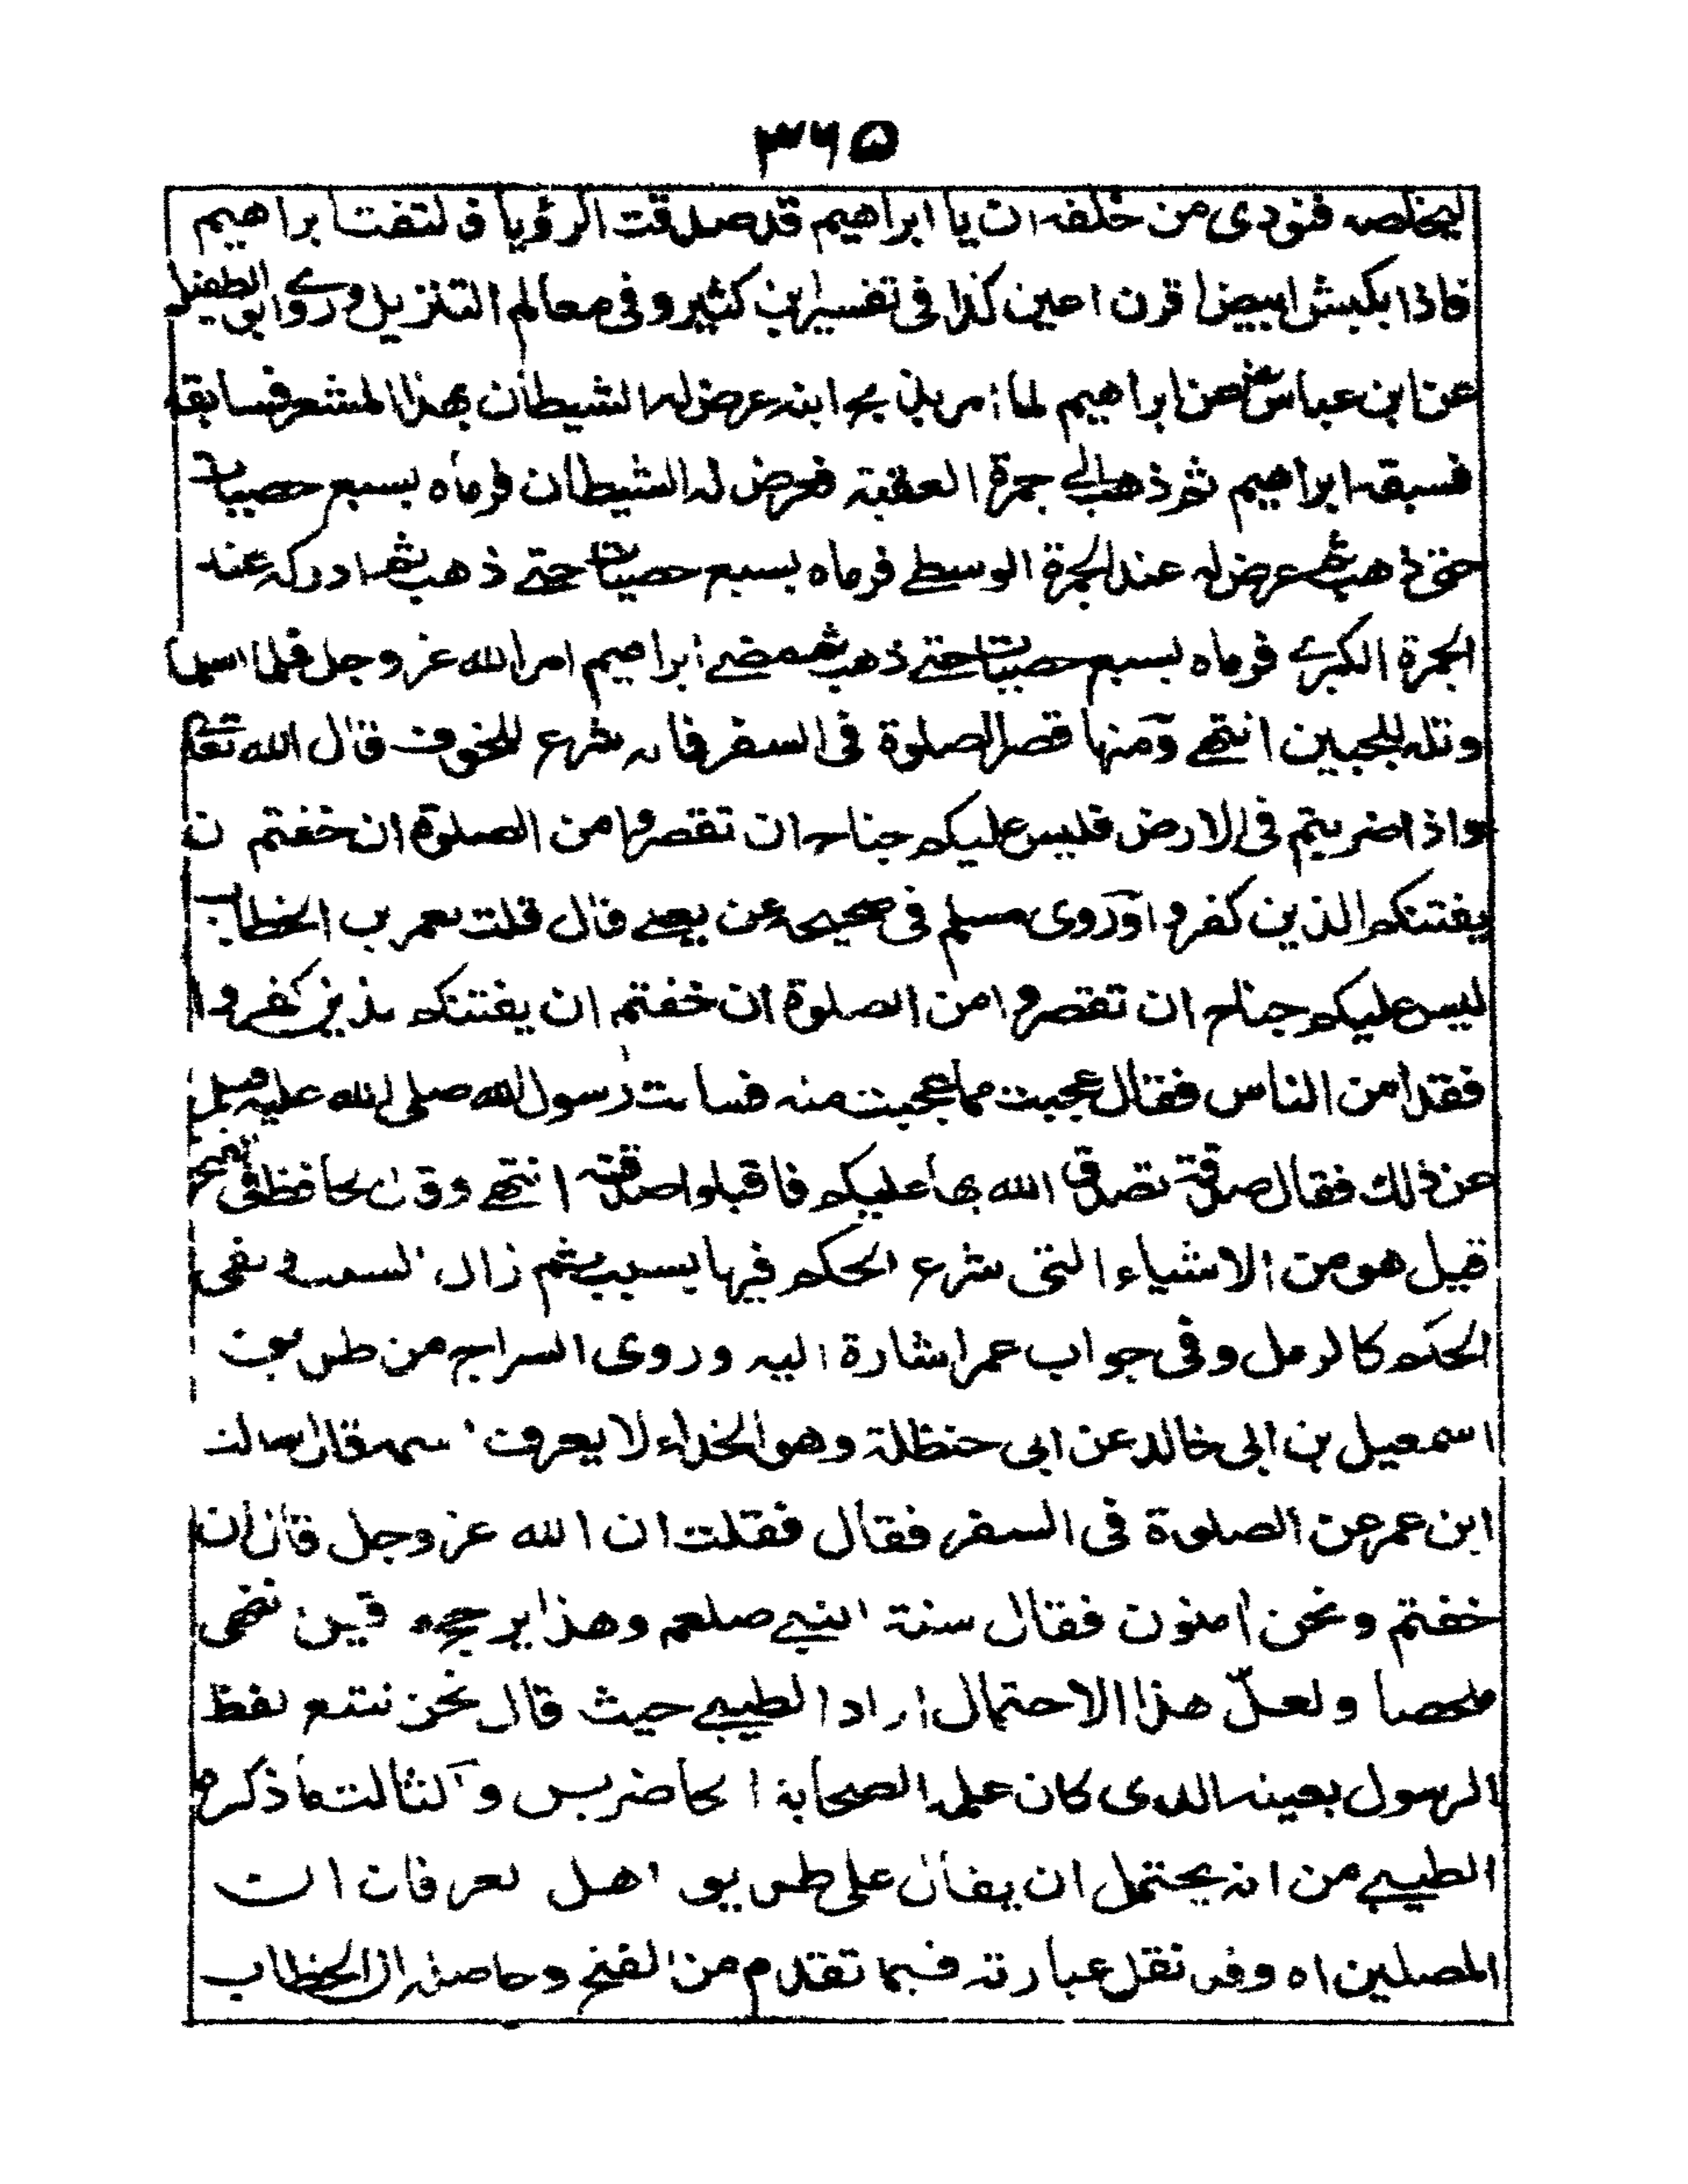 ۳۶۵
ليخلصه فنودى من خلفه ان يا ابراهيم قد صدقت الرؤيا فالتفت ابراهيم
فاذا بكبش ابيض اقرن اعين كذا فى تفسير ابن كثير وفى معالم التنزيل وروى ابو الطفيل
عن ابن عباس رض عن ابراهيم لما امر بذبح ابنه عرض له الشيطان بهذا المشعر فسابقه
فسبقه ابراهيم ثم ذهب الى جمرة العقبة فعرض له الشيطان فرماه بسبع حصيات
حتى ذهب ثم عرض له عند الجمرة الوسطى فرماه بسبع حصيات حتى ذهب ثم ادركه عند
الجمرة الكبرى فرماه بسبع حصيات حتى ذهب ثم مضى ابراهيم امر الله عز وجل فلما اسلما
وتله للجبين انتهى ومنها قصر الصلوة فى السفر فانه شرع للخوف قال الله تعالى
واذا ضربتم فى الارض فليس عليكم جناح ان تقصروا من الصلوة ان خفتم ان
يفتنكم الذين كفروا وروى مسلم فى صحيحه عن يعلى قال قلت لعمر بن الخطاب
ليس عليكم جناح ان تقصروا من الصلوة ان خفتم ان يفتنكم الذين كفروا
فقد امن الناس فقال عجبت مما عجبت منه فسالت رسول الله صلى الله عليه وسلم
عن ذلك فقال صدقة تصدق الله بها عليكم فاقبلوا صدقته انتهى وقال الحافظ فى الفتح
قيل هو من الاشياء التى شرع الحكم فيها بسبب ثم زال السبب وبقى
الحكم كالرمل وفى جواب عمر اشارة اليه وروى السراج من طريق
اسمعيل بن ابى خالد عن ابى حنظلة وهو الحذاء لا يعرف اسمه قال سالت
ابن عمر عن الصلوة فى السفر فقال فقلت ان الله عز وجل قال ان
خفتم ونحن امنون فقال سنة النبى صلعم وهذا يرجح قيل انتهى
ملخصا ولعلّ هذا الاحتمال اراد الطيبى حيث قال نحن نتبع لفظ
الرسول بعينه الذى كان علمه الصحابة الحاضرين والثالث ما ذكره
الطيبى من انه يحتمل ان يقال على طريق اهل العرفان ان
المصلين اه وقد نقل عبارته فيما تقدم من الفتح وحاصله ان الخطاب